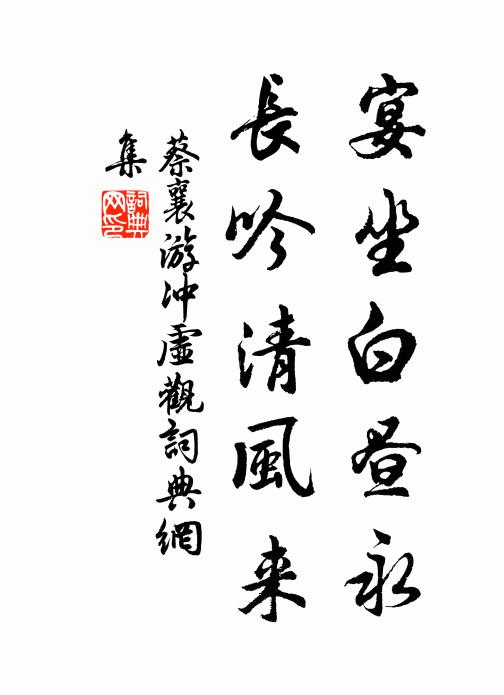 宴坐白昼永
長吟清風来
蔡襄游冲虛觀詞典網
集
詞典网印